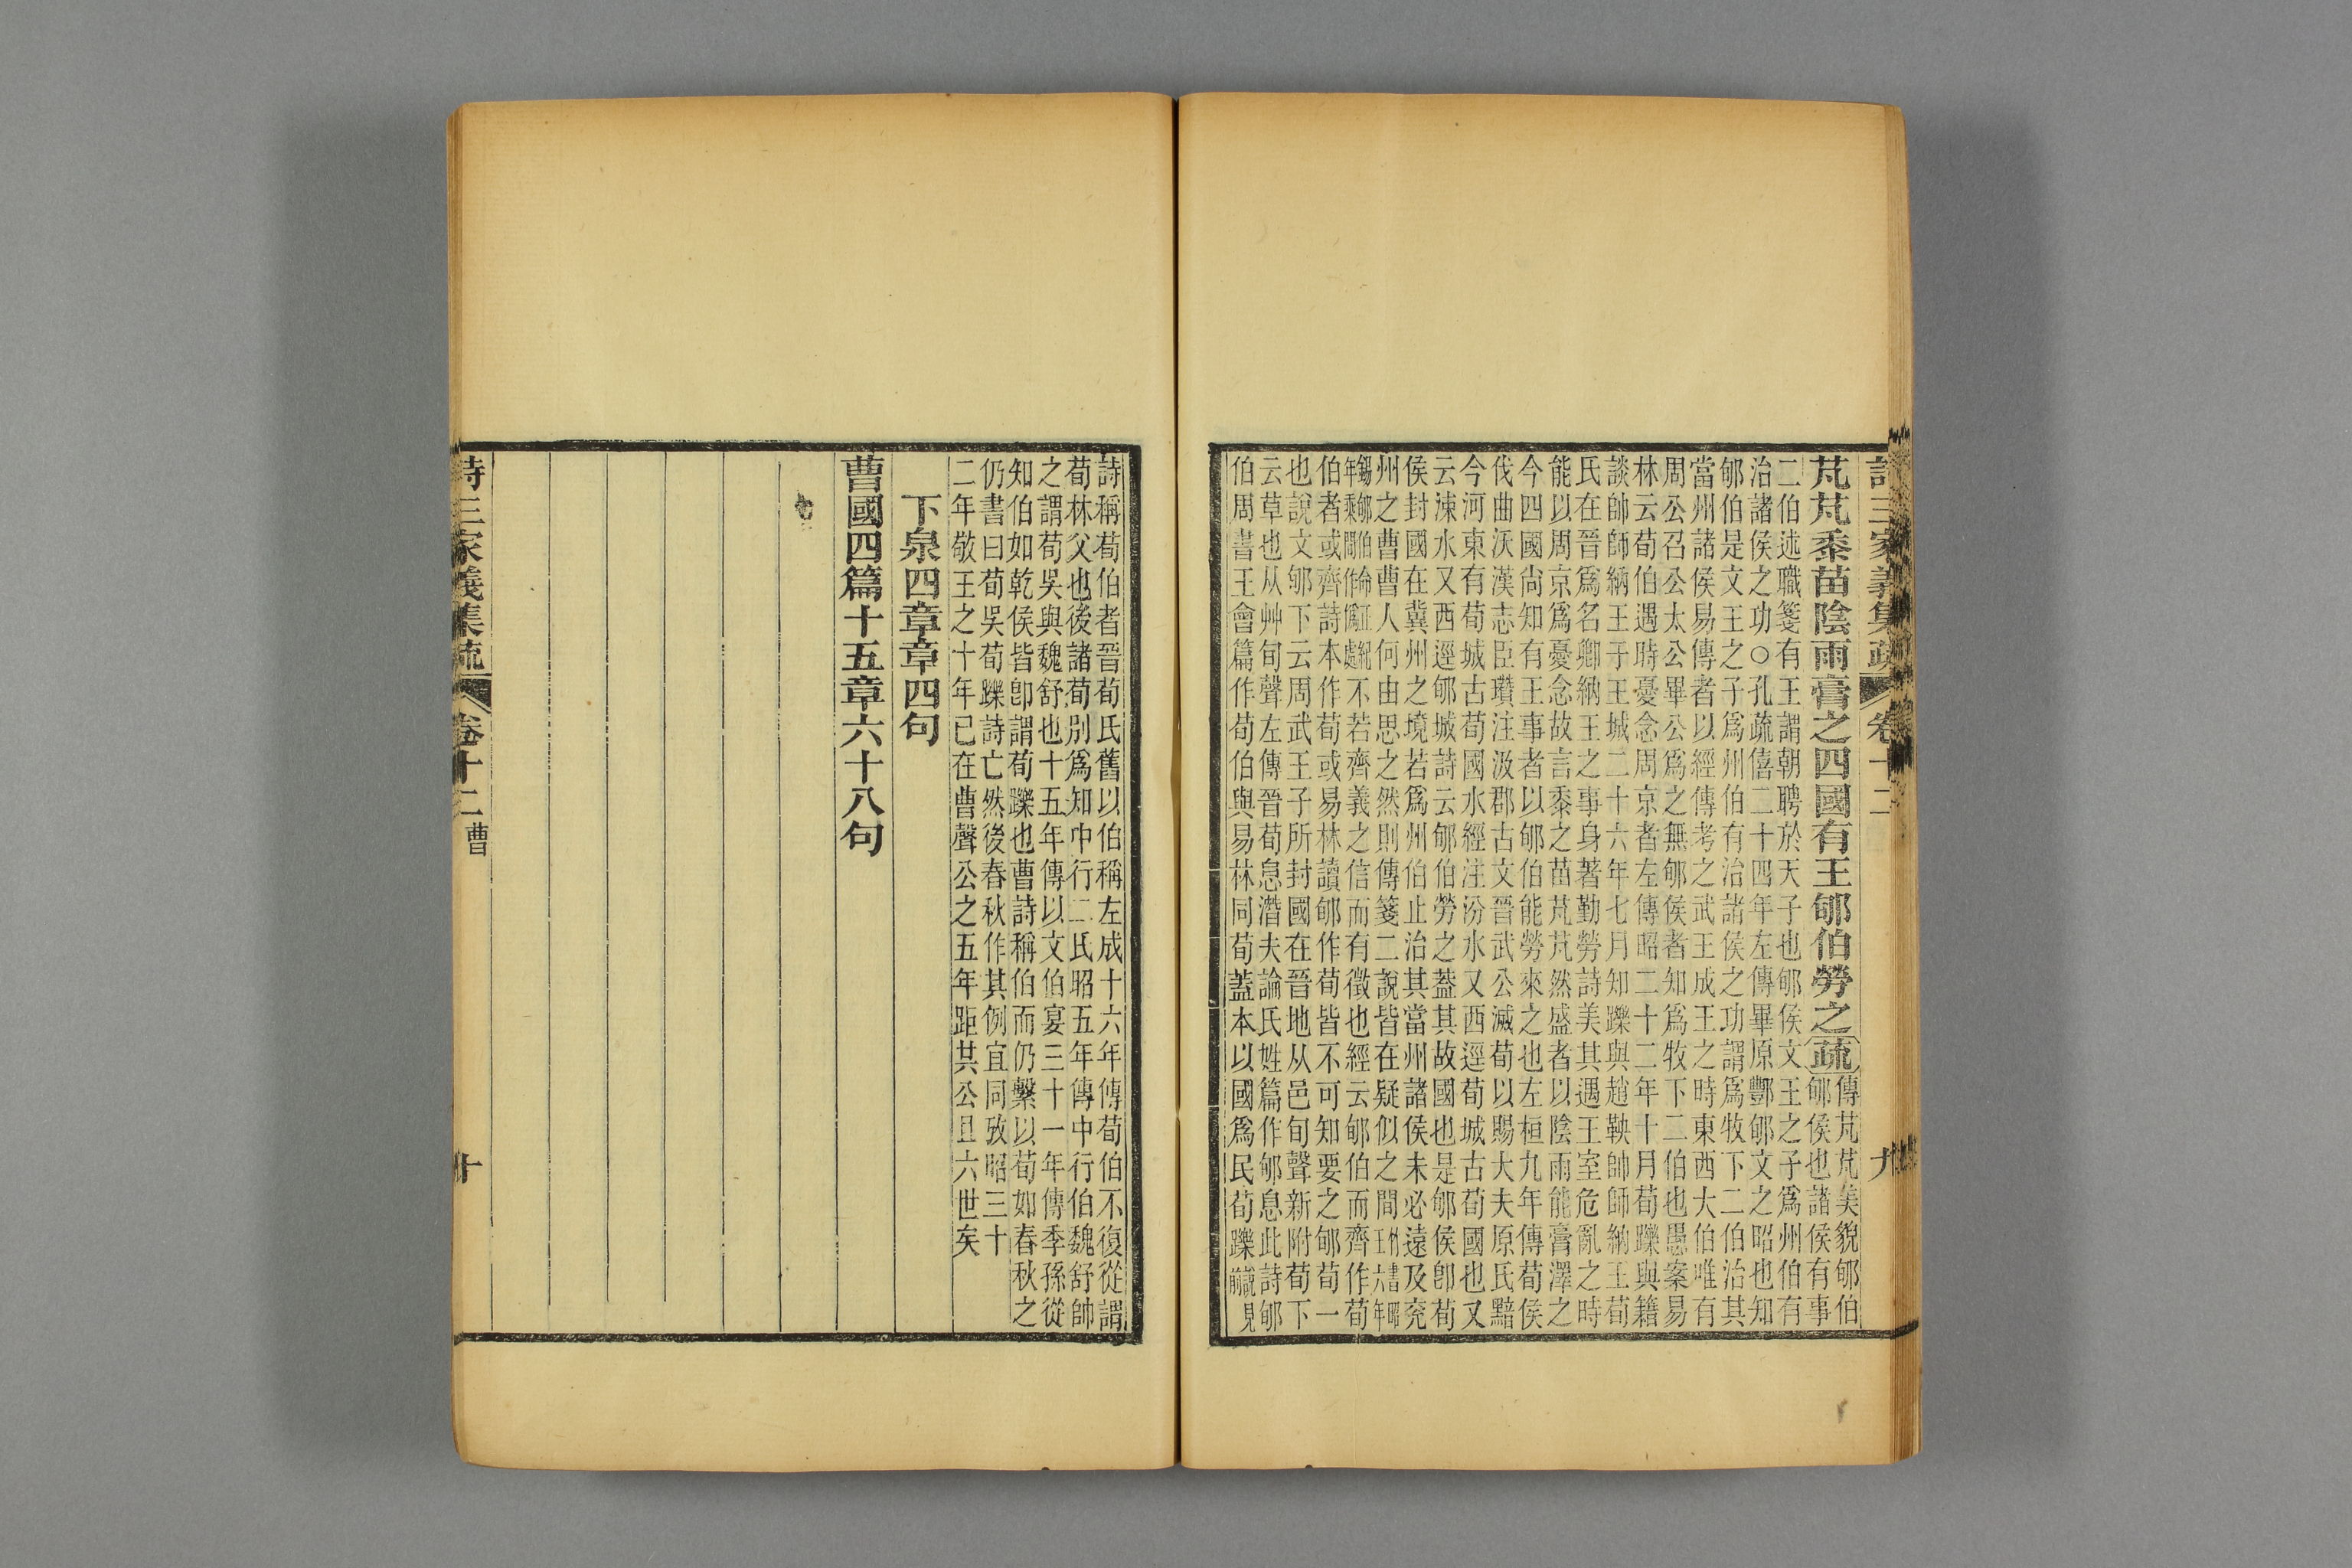 詩三家義集疏 卷十二 九
芃芃黍苗陰雨膏之四國有王郇伯勞之疏傳芃芃美貌郇伯
郇侯也諸侯有事
二伯述職箋有王謂朝聘於天子也郇侯文王之子爲州伯有
治諸侯之功○孔疏僖二十四年左傳畢原酆郇文之昭也知
郇伯是文王之子爲州伯有治諸侯之功謂爲牧下二伯治其
當州諸侯易傳者以經傳考之武王成王之時東西大伯唯有
周公召公太公畢公爲之無郇侯者知爲牧下二伯也愚案易
林云荀伯遇時憂念周京者左傳昭二十二年十月荀躒與籍
談帥師納王于王城二十六年七月知躒與趙鞅帥師納王荀
氏在晉爲名卿納王之事身著勤勞詩美其遇王室危亂之時
能以周京爲憂念故言黍之苗芃芃然盛者以陰雨能膏澤之
今四國尙知有王事者以郇伯能勞來之也左桓九年傳荀侯
伐曲沃漢志臣瓚注汲郡古文晉武公滅荀以賜大夫原氏黯
今河東有荀城古荀國水經注汾水又西逕荀城古荀國也又
云涑水又西逕郇城詩云郇伯勞之葢其故國也是郇侯卽荀
侯封國在冀州之境若爲州伯止治其當州諸侯未必遠及兖
州之曹曹人何由思之然則傳箋二說皆在疑似之間竹書昭王六年
錫郇伯命年乘剛作僞証紀處不若齊義之信而有徵也經云郇伯而齊作荀
伯者或齊詩本作荀或易林讀郇作荀皆不可知要之郇荀一
也說文郇下云周武王子所封國在晉地从邑旬聲新附荀下
云草也从艸旬聲左傳晉荀息潛夫論氏姓篇作郇息此詩郇
伯周書王會篇作荀伯與易林同荀葢本以國爲民荀躒誠見前
詩稱荀伯者晉荀氏舊以伯稱左成十六年傳荀伯不復從謂
荀林父也後諸荀別爲知中行二氏昭五年傳中行伯魏舒帥
之謂荀吳與魏舒也十五年傳以文伯宴三十一年傳季孫從
知伯如乾侯皆卽謂荀躒也曹詩稱伯而仍繫以荀如春秋之
仍書曰荀吳荀躒詩亡然後春秋作其例宜同攷昭三十
二年敬王之十年已在曹聲公之五年距共公且六世矣
下泉四章章四句
曹國四篇十五章六十八句
詩三家義集疏 卷十二 曹 十